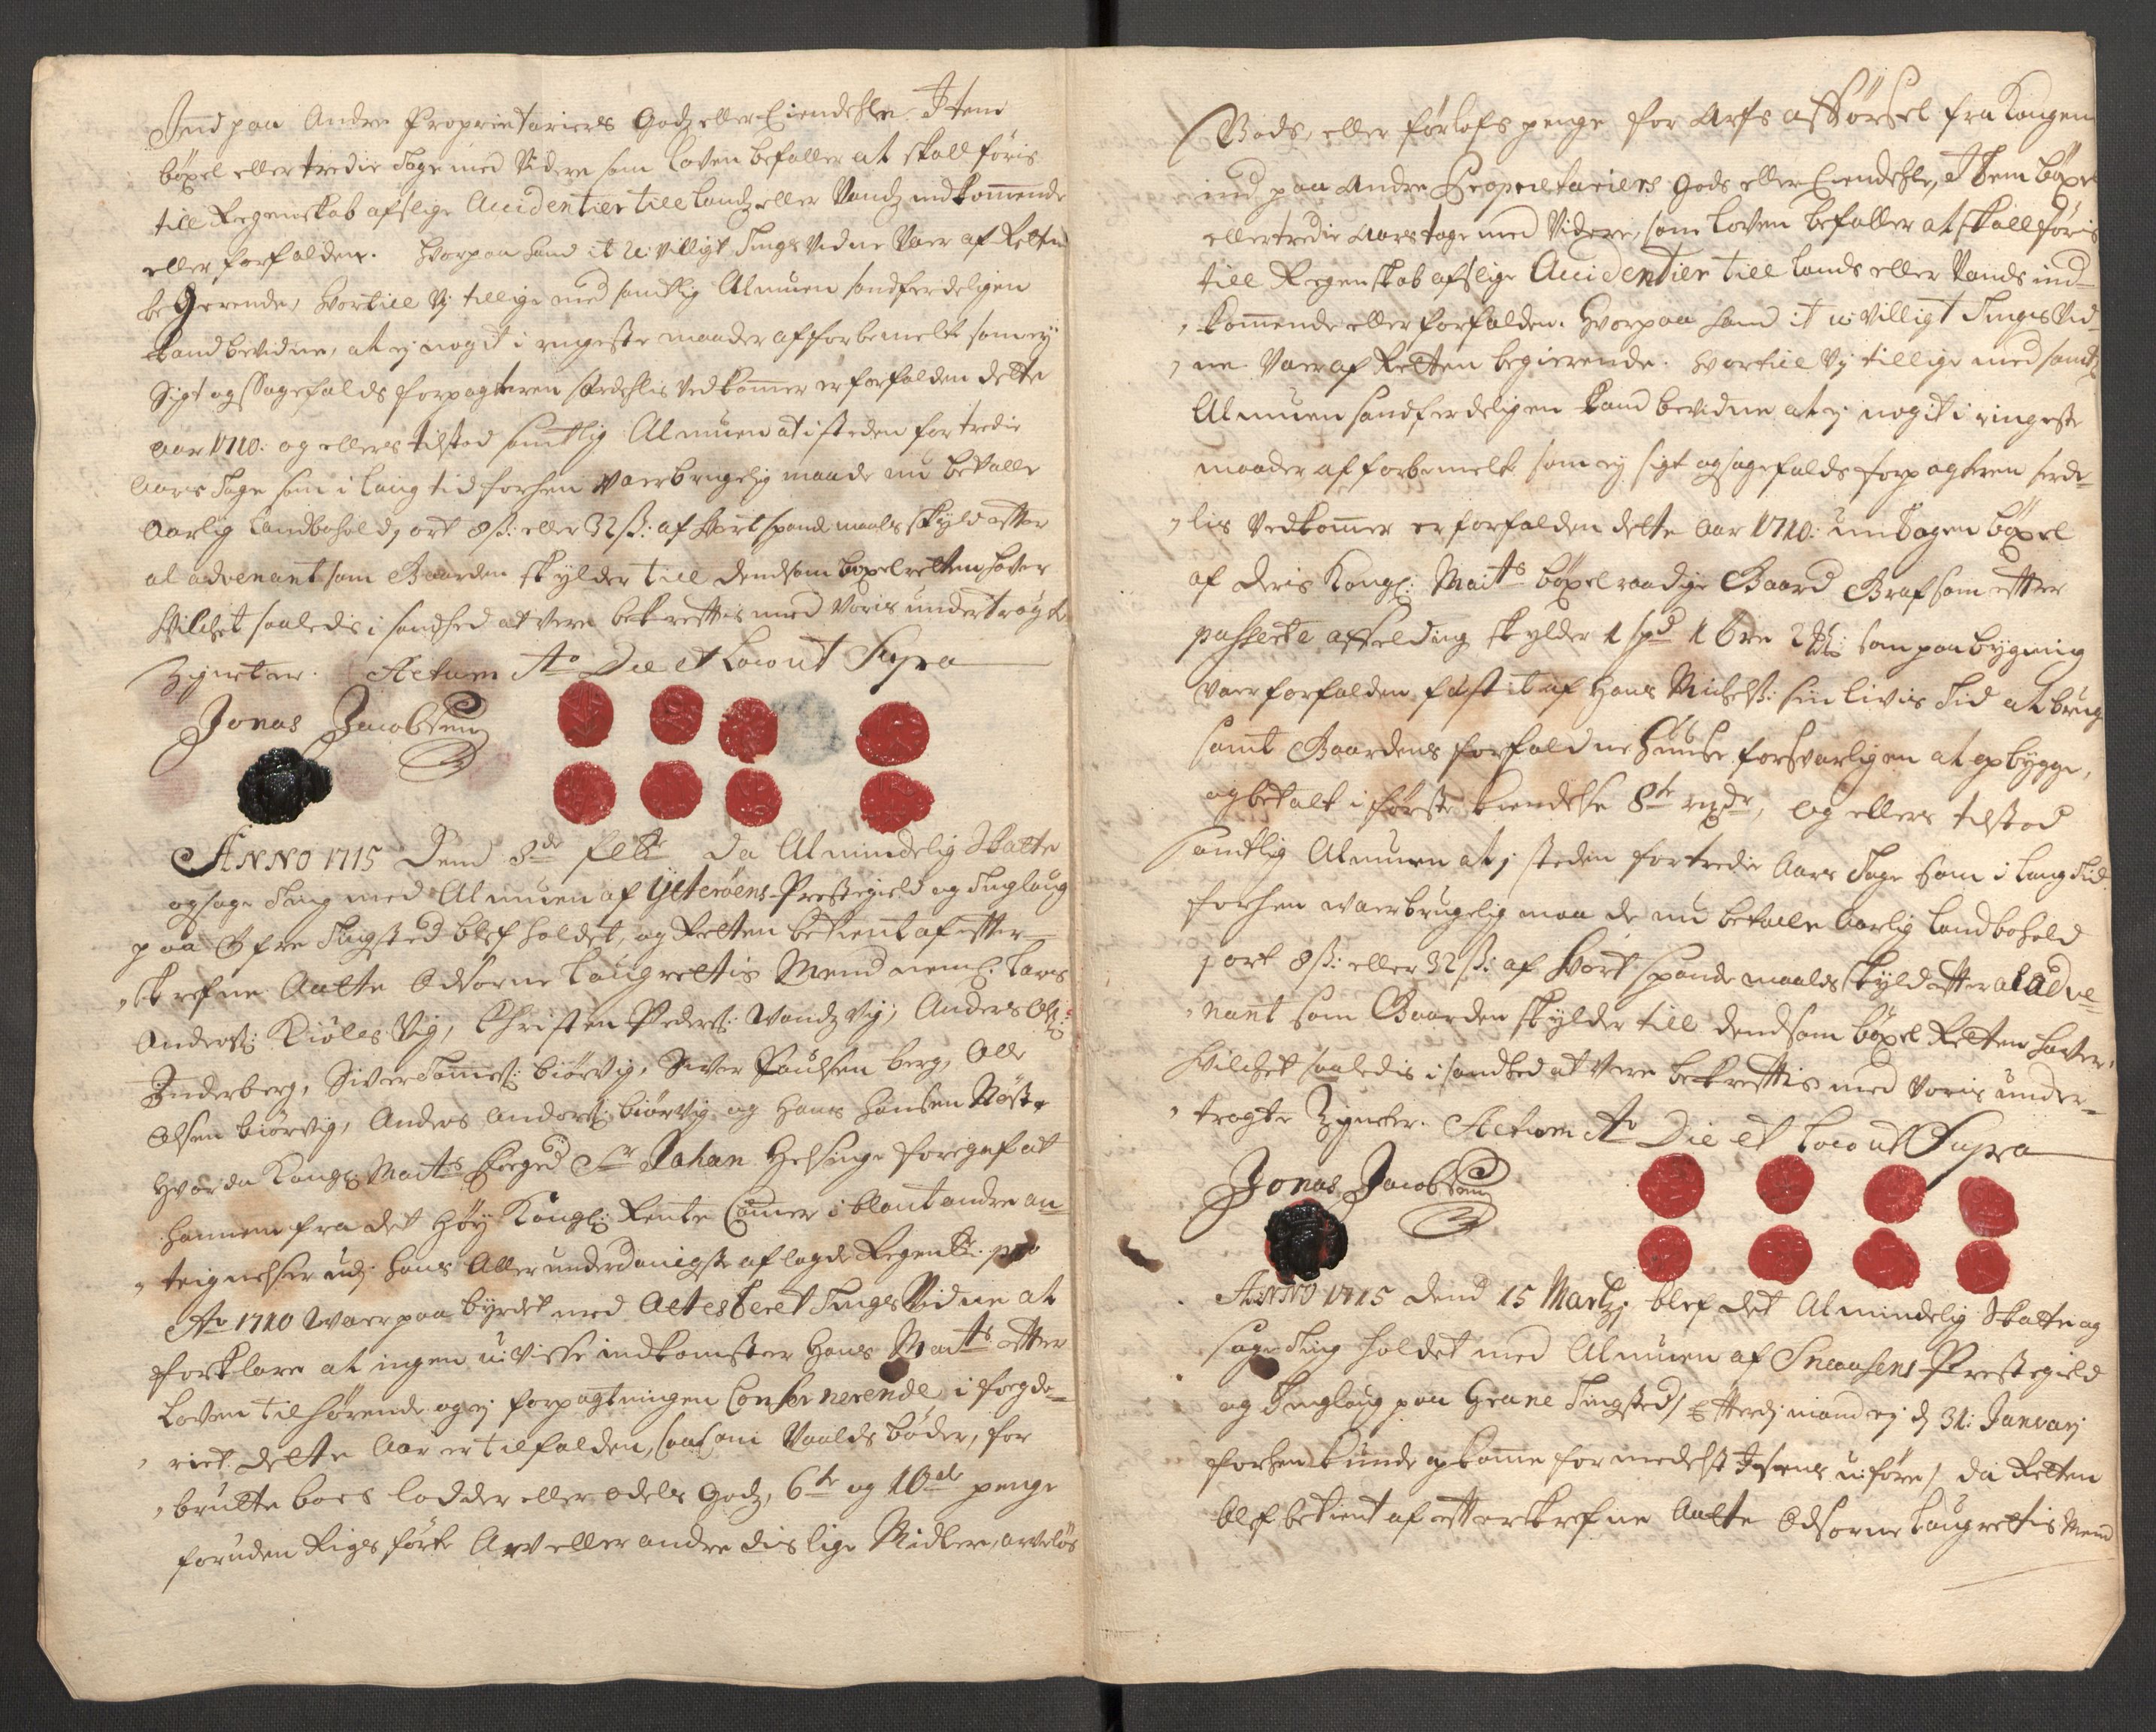 Ind paa Andre Proprietariers Godz eller Eiendehle. Item
böxel eller tredie Tage med Videre som loven befaller at skall føris
till Regenskab af slige Accidentier till Landz eller Vandz indkommende
eller forfalden. Hvorpaa hand it u-villigt Tings Vidne Vaer af Retten
begierende, hvortill Vj tillige med samtlig Almuen sandferdeligen
kand bevidne, at ej nogit i ringeste maader af forbemelte som ej
Sigt og Sagefalds forpagteren serdehlis Vedkommer er forfalden dette
aar 1710: og ellers tilstod samtlig Almuen at i steden for tredie
Aars Tage som i lang tid forhen Vaer brugelig maa de nu betalle
Aarlig Landbohold, 1 ort 8 ß: eller 32 ß: af hvert spand maals skyld etter
al advenant som Gaarden skylder till dend som böxel retten haver
Hvilchet saaledis i sandhed at vere bekrefftis med Voris undertrögte
Zigneter. Actum Ao Die et Loco ut Supra
Jonas Jacobsen
ANNO 1715 Dend 8de febr da Almindelig Skatte
og sage Ting med Almuen af Ytterøens Prestegield og Tinglaug
paa Tingsted blef holdet, og Retten betient af etter-
skrefne Aatte Edsorne laugrettis Mend neml. Lars
Anderß: Kiölesvig, Christen Pederß: Vandzvig, Anders Olß:
Inderberg, Siver Tommeß: biörvig, Siver Paulsen berg, Olle
Olsen biörvig, Anders Anderß: biörvig og Hans Hansen Röste
Hvor da Kongl: Maits foged Sr Johan Helsing foregaf at
hannem fra det Høy Kongl: Rente Cammer iblant andre an-
teignelser udj hans Aller underdanigste aflagde Regensk: pro
Ao 1710 Waer paa byrdet med Attesteret Tings Vidne at
forklare at ingen u-visse indkomster Hans Maits etter
Loven tilhørende og ej forpagtningen Consernerende, i fogde-
riet dette Aar er tilfalden, saasom Vaalds bøder, for
brutte boes lodder eller odels Godz, 6te og 10de penge
foruden Rigs førte Arv eller andre dislige Midler, arveløs
Gods, eller førlofs penge for Arfs affførsel fra Kongens
ind paa Andre Proprietariers Gods eller Eiendehle, Item böxel
eller tredie Aars tage med Videre, som loven befaller at skall føris
till Regenskab af slige Accidentier till Lands eller Vands ind-
kommende eller forfalden. Hvorpaa hand it u-villigt Tings Vid-
ne Vaer af Retten begierende. hvortill Vj tillige med samtl:
Almuen sandferdeligen kand bevidne at ej nogit i ringeste
maader af forbemelte som ej sigt og sagefalds forpagteren serde-
lis Vedkommer er forfalden dette aar 1710: undtagen böxel
af deris Kongl: Maits böxelraadige Gaard Graf som etter
passerte affelding skylder 1 spd 1 öre som paa bygning
vaer forfalden, fæst it af Hans Michelß: sin livis Tid at bruge
samt Gaardens forfaldne Huuse forsvarligen at opbygge,
og betalt i første 8te rixdr, og ellers tilstod
samtlig Almuen at i steden for tredie Aars Tage som i lang Tid
forhen waer brugelig maa de nu betalle Aarlig Landbohold
1 ort 8 ß: eller 32 ß: af hvert spande maalds skyld etter al adve-
nant som Gaarden skylder till dend som böxel Retten haver,
Hvilchet saaledis i sandhed at vere bekrefftis med Voris under-
trögte Zigneter. Actum Ao Die et Loco ut Supra
Jonas Jacobsen
ANNO 1715 dend 15 Martzj blef det Almindelig Skatte og
sage Ting holdet med Almuen af Snaasens Prestegield
og Tinglaug paa Grane Tingsted, etterdj mand ej d 31: Januarj
forhen kunde op komme formedelst Isens uføre, da Retten
blef betient af etterskrefne Aatte Edsorne Laugrettis Mend